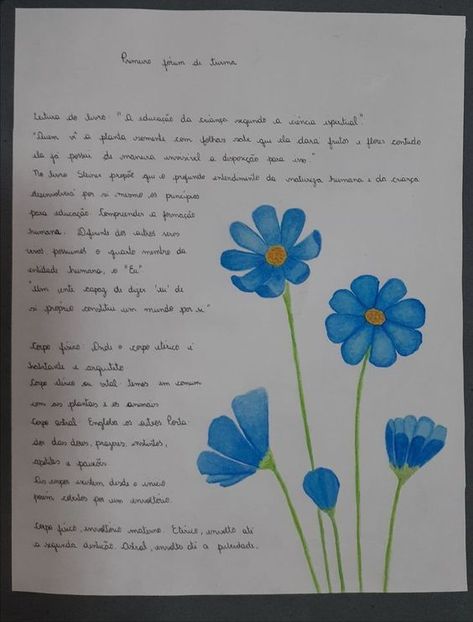 Primeiro fórum de turma
Leitura do livro: "A educação da criança segundo a ciência espiritual".
"Quem vê a planta somente com folhas sabe que ela dara frutos e flores contudo
ela já possui de maneira invisível a disposição para isso."
No livro Steiner propõe que o profundo entendimento da natureza humana e da criança
desenvolverá por si mesmo os princípios
para educação. Compreender a formação
humana. Diferente dos outros seres
vivos possuimos o quarto membro da
entidade humana, o "Eu"
"Um ente capaz de dizer 'eu' de
si próprio constitui um mundo por si."
Corpo físico: Onde o corpo etérico é
habitante e arquiteto
Corpo etérico ou vital: temos em comum
com as plantas e os animais
Corpo astral: Engloba os astros Porta
dor das dores, prazeres, instintos,
apetites e paixões
Os corpos existem desde o inicio
porém cobertos por um envoltório.
Corpo físico, envoltório materno. Etérico, envolto até
a segunda dentição. Astral, envolto até a puberdade.